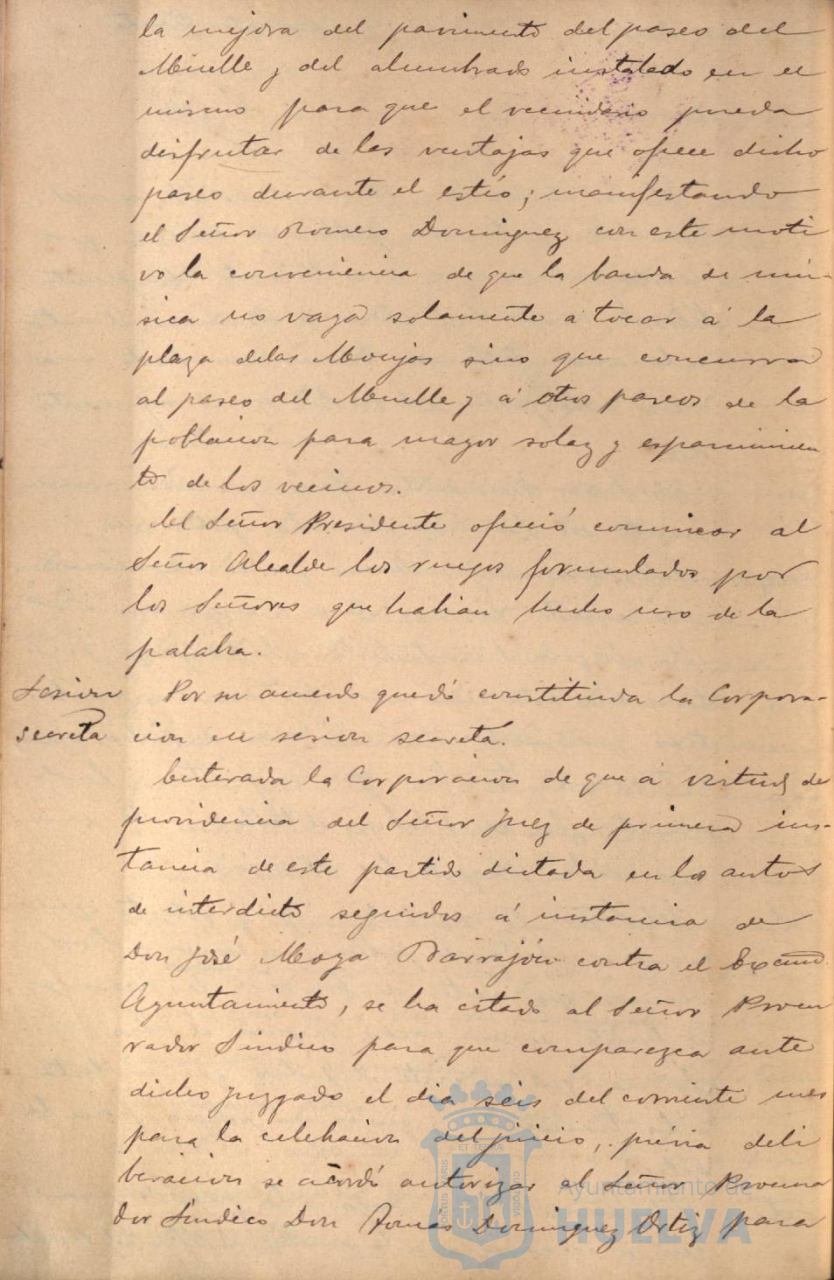 la mejora del pavimento del paseo del
Muelle y del alumbrado instalado en el
mismo para que el vecindario pueda
disfrutar de las ventajas que ofrece dicho
paseo durante el estío; manifestando
el Señor Romero Dominguez con este moti
vo la conveniencia de que la banda de mú-
sica no vaya solamente a tocar á la
plaza de las Monjas sino que concurra
al paseo del Muelle y á otros paseos de la
poblacion para mayor solaz y esparcimien
to de los vecinos.
El Señor Presidente ofreció comunicar al
Señor Alcalde los ruegos formulados por
los Señores que habian hecho uso de la
palabra.
Sesion
secreta
Por su acuerdo quedó constituida la Corpora-
cion en sesion secreta.
Enterada la Corporacion de que á virtud de
providencia del Señor Juez de primera ins-
tancia de este partido dictada en los autos
de interdicto seguidos á instancia de
Don José Moya Barrajón contra el Excmo
Ayuntamiento, se ha citado al Señor Procu
rador Sindico para que comparezca ante
dicho Juzgado el dia seis del corriente mes
para la celebracion del juicio, prévia deli
beracion se acordó autorizar al Señor Procura
dor Sindico Don Tomas Dominguez Ortiz para
Ayuntamiento de
HUELVA